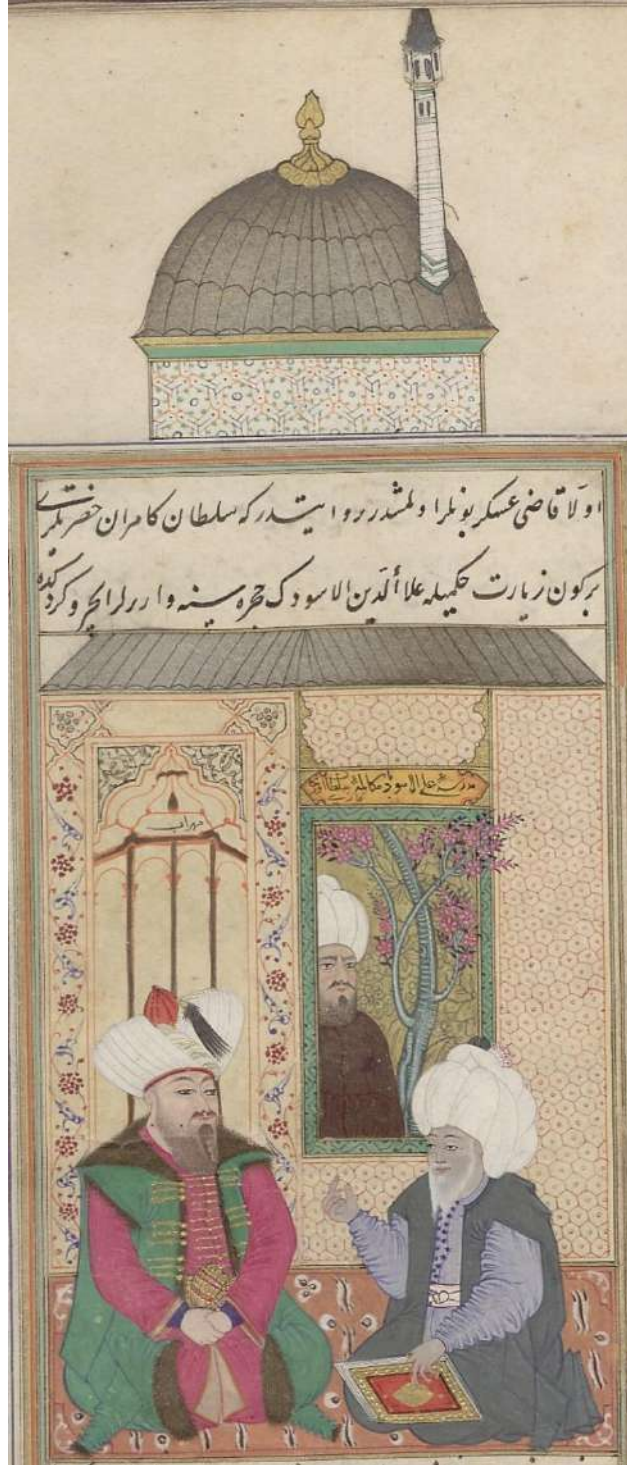 اولا قاضی عسکر بونلر اولمشدر روایتدر که سلطان کامران حضرتلری
برکون زیارت حکمیله علاءالدین الاسودک حجره سینه واررلر ایچرو کردکده
محراب
مدرسهٔ علی الاسود مکالمهٔ سلطان